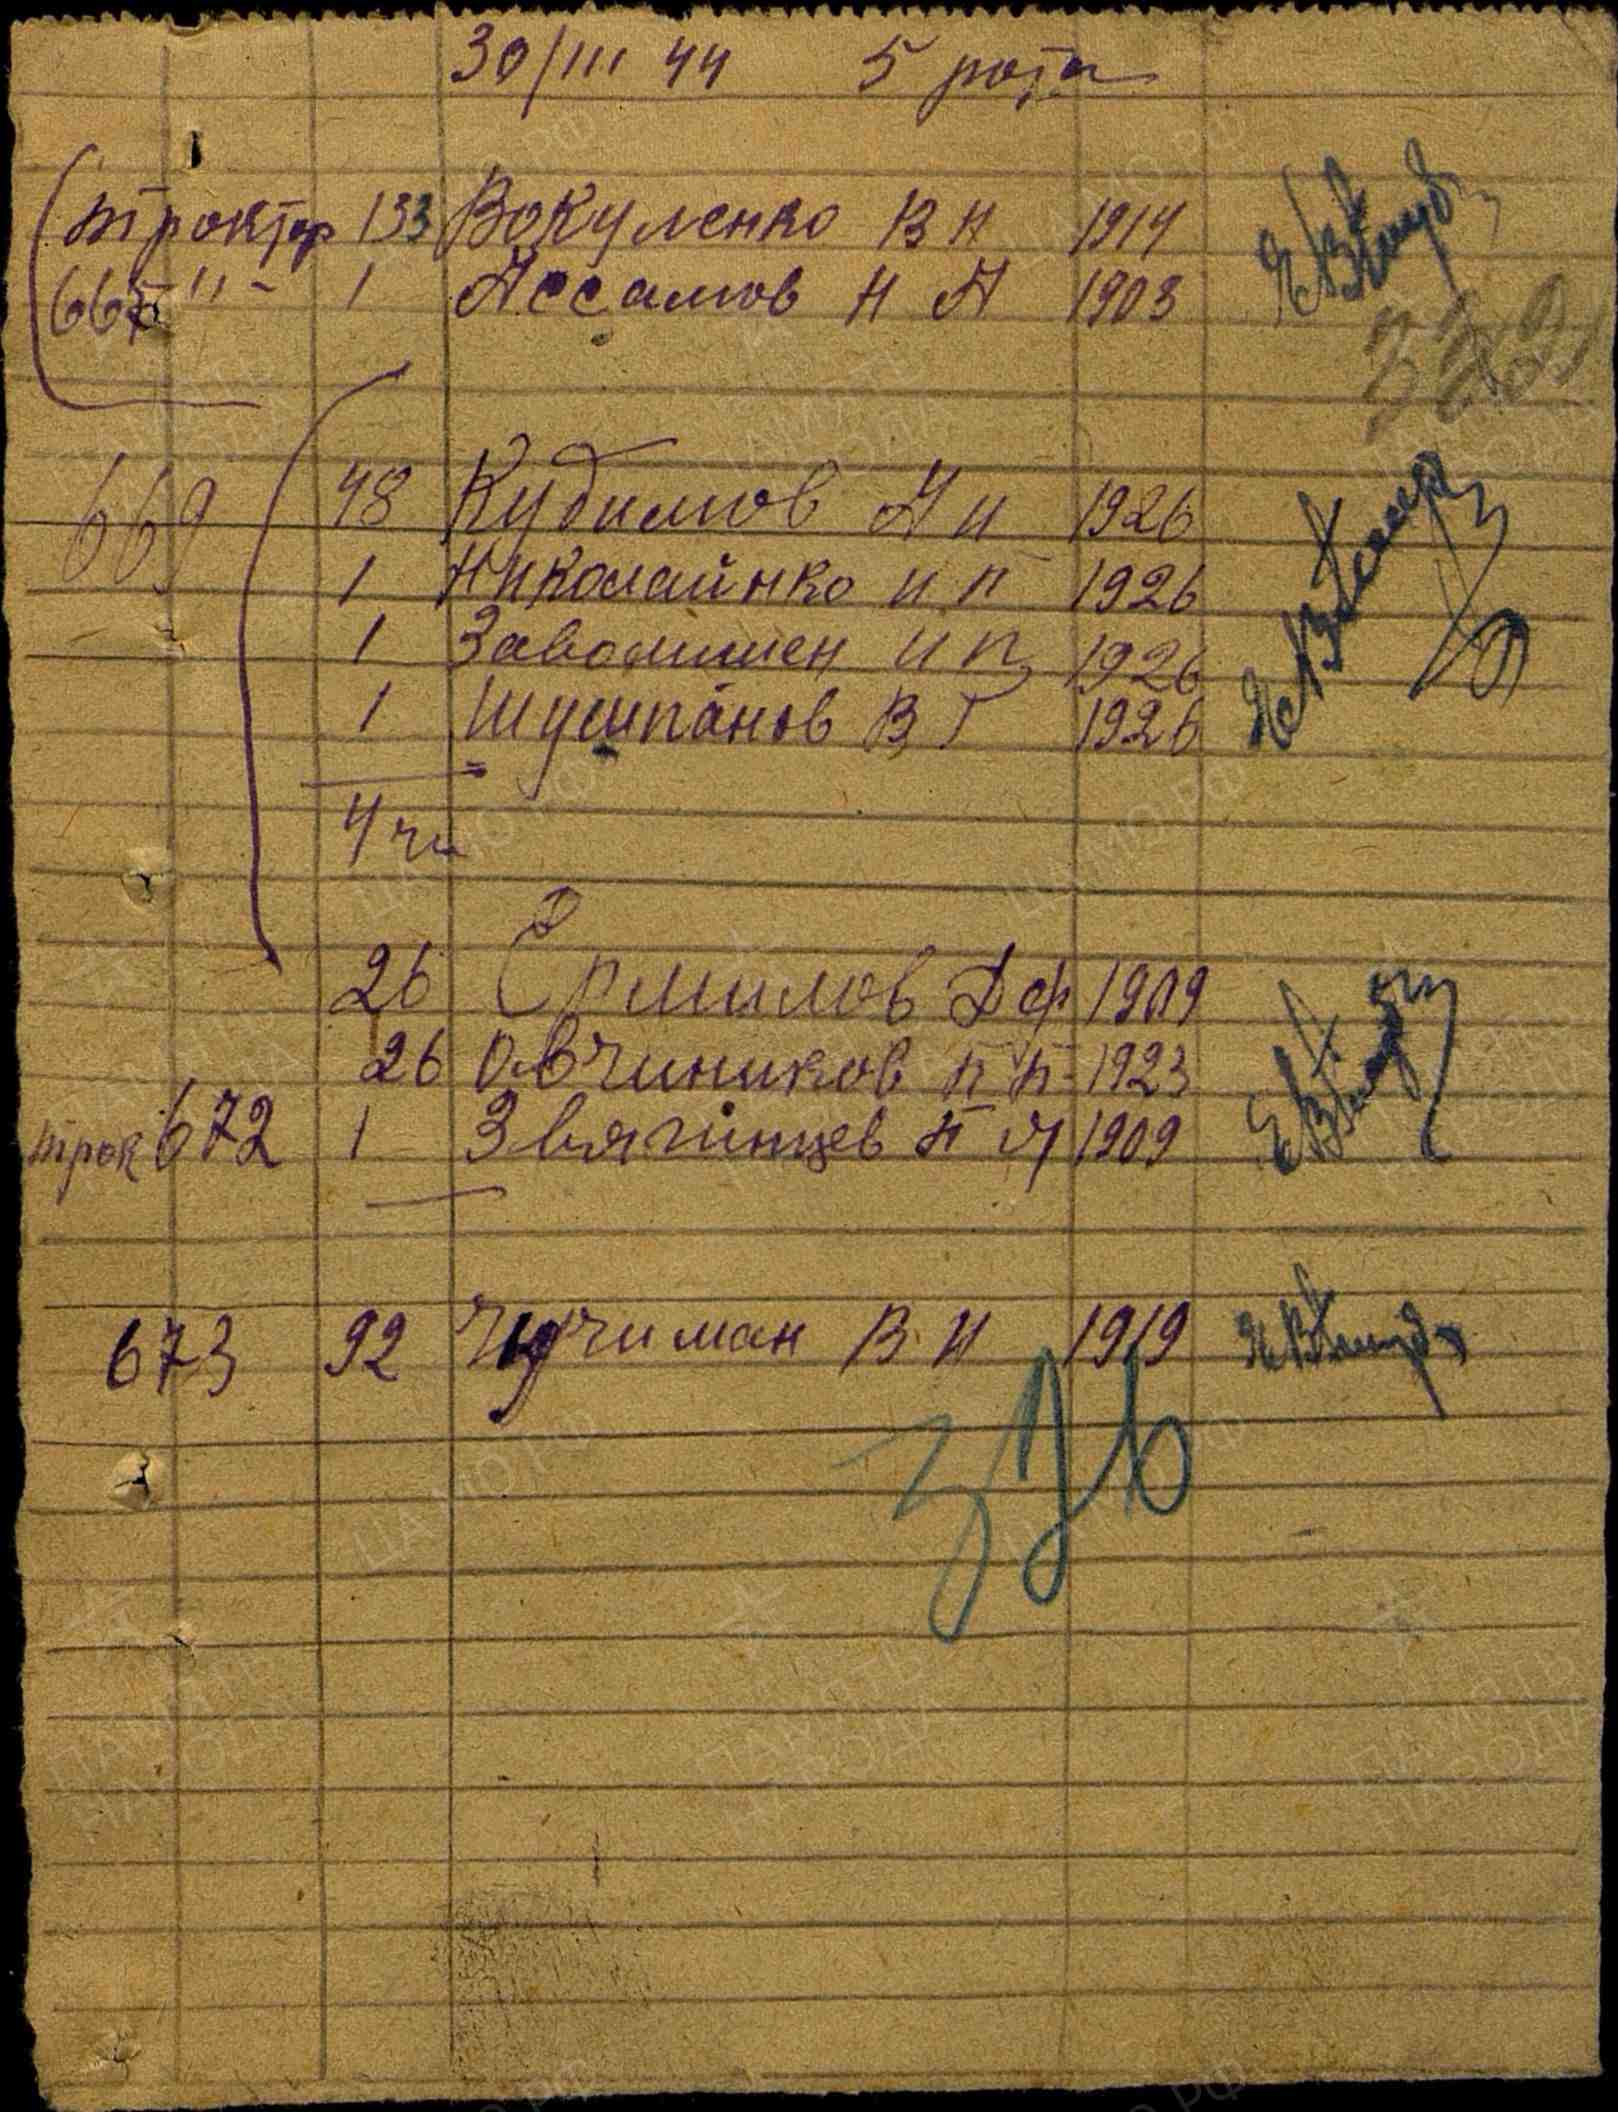 30/III 44 5 рота
Троктор 133 Вокуленко В Н 1914
667 " - 1 Ассамов Н А 1903
669 48 Кубимов А И 1926
1 Николайнко И П 1926
1 Заволишен И П 1926
1 Шушпанов В Г 1926
4 чл
26 Ермилов Д Ф 1909
26 Овчиников П П 1923
трок 672 1 Звягинцев П Я 1909
673 92 Чучиман В И 1919